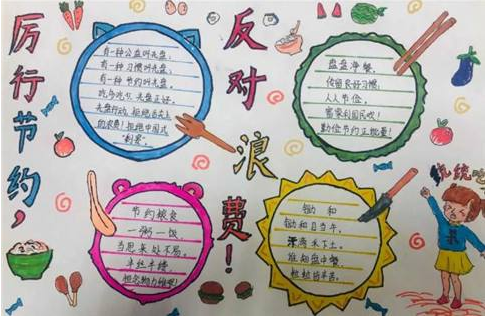 厉行节约，
反对浪费！
有一种公益叫光盘，
有一种习惯叫光盘，
有一种节约叫光盘，
光盘正好。
光盘行动，拒绝舌尖上
的浪费！拒绝中国式
"剩宴"。
盘盘净餐，
良好习惯，
人人节俭，
富家利国民欢！
勤俭节约正能量！
节约粮食
一粥一饭
当思来处不易，
半丝半缕，
恒念物力维艰！
锄 和
锄和日当午，
滴禾下土。
谁知盘中餐
粒粒皆辛苦。
统统吃